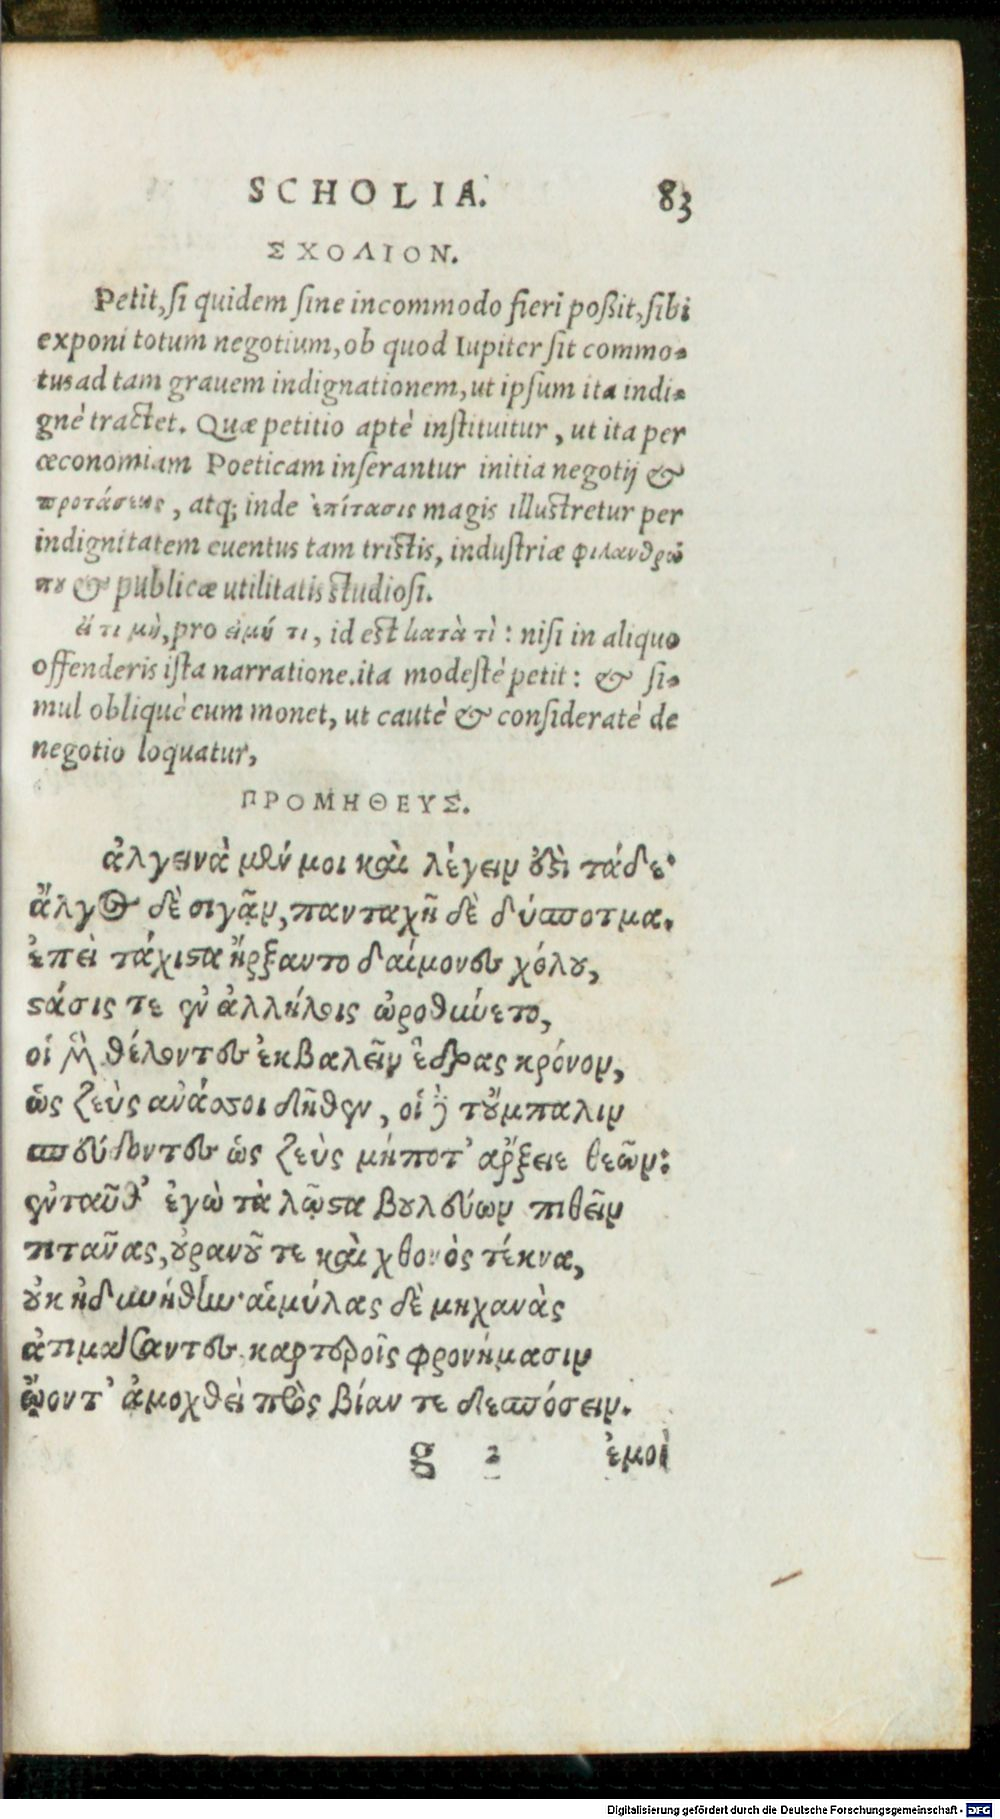 SCHOLIA. 83
ΣΧΟΛΙΟΝ.
Petit, si quidem sine incommodo fieri poßit, sibi
exponi totum negotium, ob quod Iupiter sit commo-
tus ad tam grauem indignationem, ut ipsum ita indi-
gnè tractet. Quæ petitio aptè instituitur, ut ita per
œconomiam Poeticam inserantur initia negotij &
προτάσεως, atq; inde ἐπίτασις magis illustretur per
indignitatem euentus tam tristis, industriæ φιλανθρώ
που & publicæ utilitatis studiosi.
εἴ τι μὴ, pro εἰ μή τι, id est κατὰ τὶ: nisi in aliquo
offenderis ista narratione. ita modestè petit: & si-
mul obliquè eum monet, ut cautè & consideratè de
negotio loquatur,
ΠΡΟΜΗΘΕΥΣ.
ἀλγεινὰ μέν μοι καὶ λέγειν ἐστὶ τάδε·
ἄλγος δὲ σιγᾷν, πανταχῆ δὲ δύσποτμα.
ἐπεὶ τάχιστα ἤρξαντο δαίμονες χόλου,
στάσις τε ἐν ἀλλήλοις ὠροθύνετο,
οἱ μὲν θέλοντες ἐκβαλεῖν ἕδρας κρόνον,
ὡς ζεὺς ἀνάσσοι δῆθεν, οἱ δὲ τοὔμπαλιν
σπεύδοντες ὡς ζεὺς μήποτ’ ἄρξειε θεῶν:
ἐνταῦθ’ ἐγὼ τὰ λῷστα βουλεύων πιθεῖν
τιτᾶνας, οὐρανοῦ τε καὶ χθονὸς τέκνα,
οὐκ ἠδυνήθην· αἱμύλας δὲ μηχανὰς
ἀτιμάσαντες καρτεροῖς φρονήμασιν
ᾤοντ’ ἀμοχθεὶ πρὸς βίαν τε δεσπόσειν.
g 2 ἐμοὶ
Digitalisierung gefördert durch die Deutsche Forschungsgemeinschaft - DFG